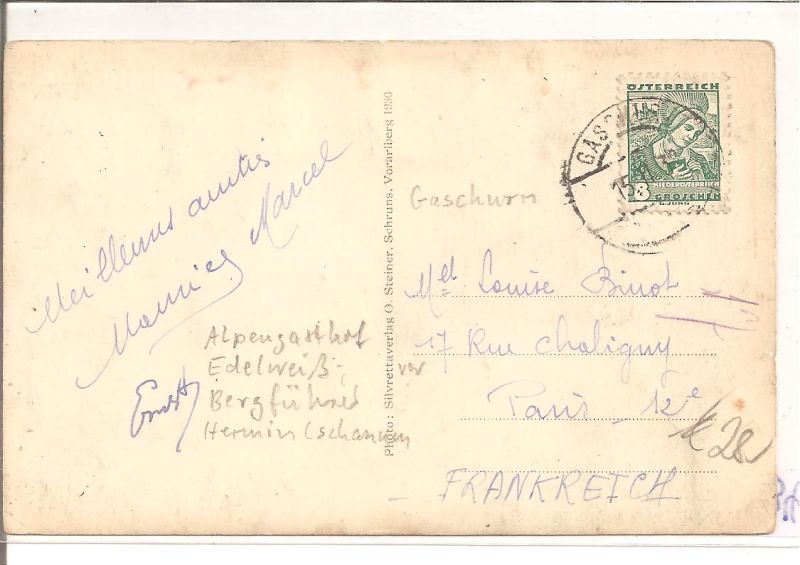 Meilleures amitiés
Maurice Marcel
Ernst
Alpengasthof
Edelweiß,
Bergführer
Photo: Silvrettaverlag O. Steiner, Schruns, Vorarlberg 1930
ÖSTERREICH
NIEDERÖSTERREICH
GROSCHEN
Gaschurn
Mell Louise Binot
17 Rue Chaligny
Paris - 12e
FRANKREICH